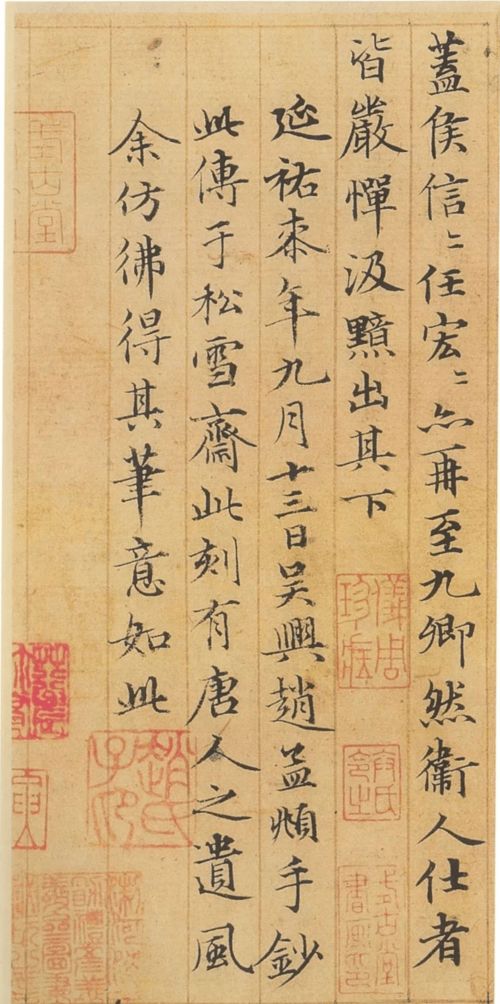 蓋侯信〻任宏〻亦再至九卿然衞人仕者
皆嚴憚汲黯出其下
延祐柒年九月十三日吴興趙孟頫手鈔
此傳于松雪齋此刻有唐人之遺風
余仿彿得其筆意如此
趙氏子印
儀周珍藏